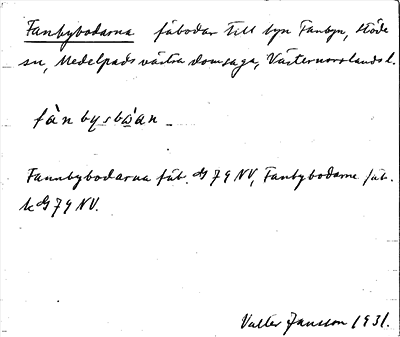 Fanbybodarna fäbodar till byn Fanbyn, Stöde
sn, Medelpads västra domsaga, Västernorrlands l.
fànbysbo̱an
Fannbybodarna fäb. G 79 NV, Fanbybodarne fäb.
k G 79 NV.
Valter Jansson 1931.